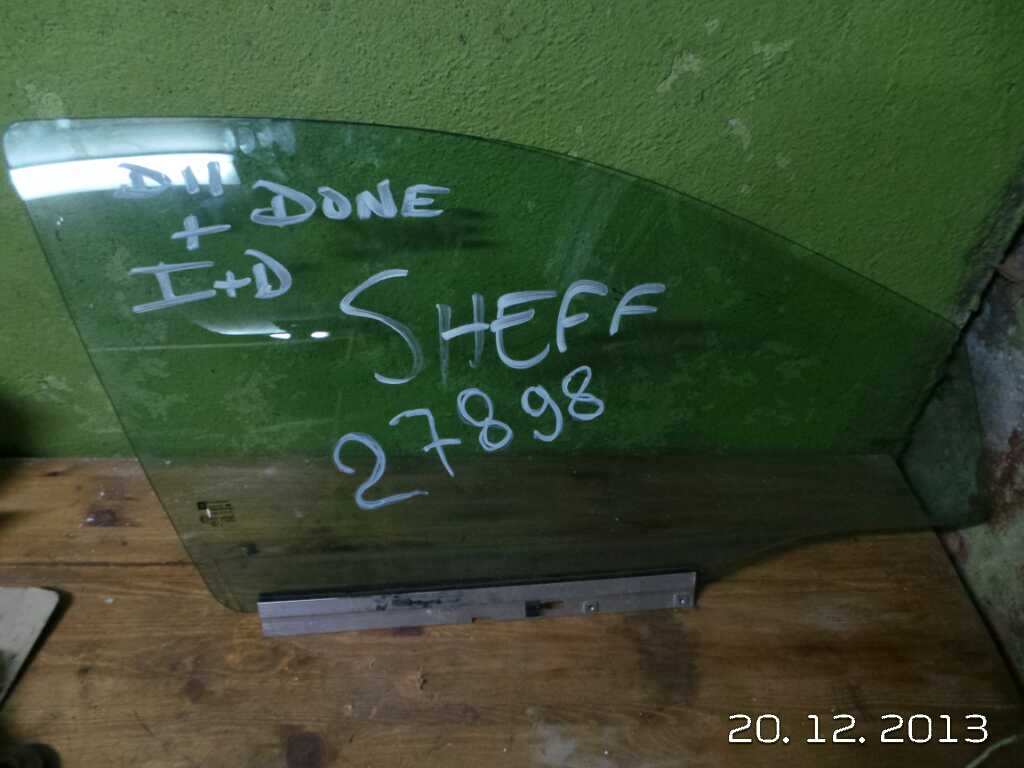 D11 DONE
+
I+D
SHEFF
27898
20.12.2013